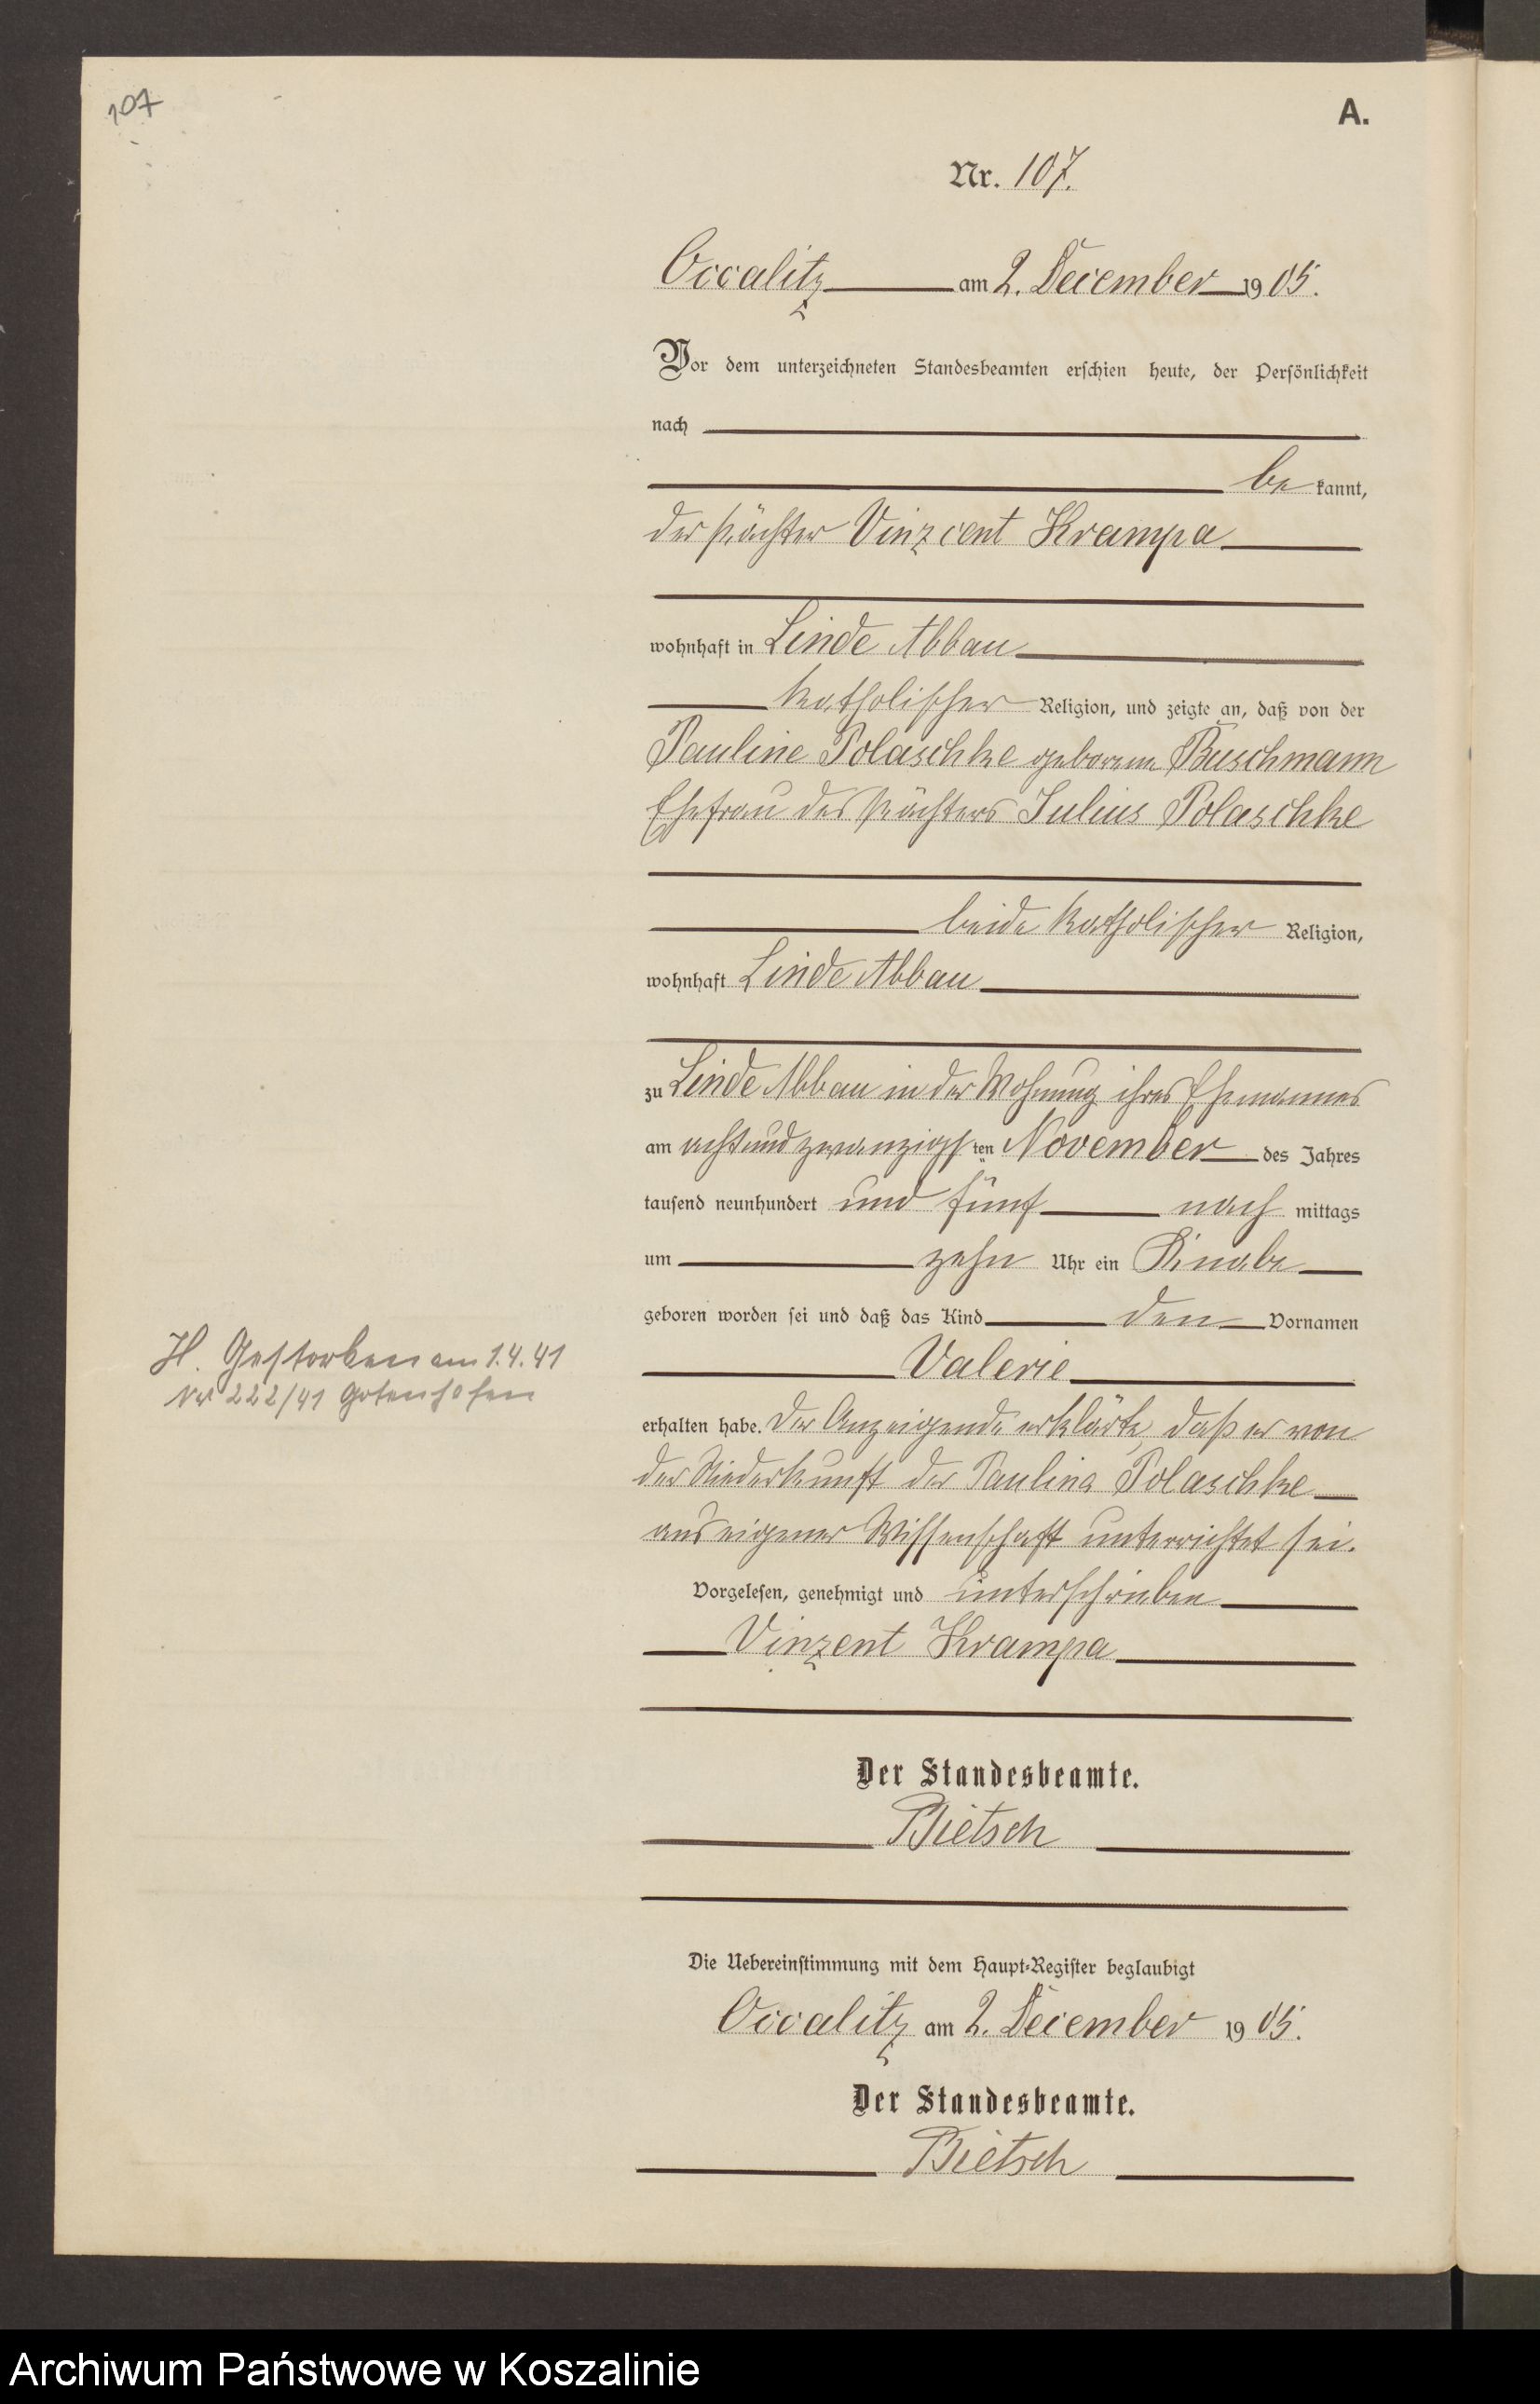 107
A.
Nr. 107.
Occalitz am 2. December 1905.
Vor dem unterzeichneten Standesbeamten erschien heute, der Persönlichkeit
nach
be kannt,
der Pächter Vinzcent Krampa
wohnhaft in Linde Abbau
katholischer Religion, und zeigte an, daß von der
Pauline Polaschke geborene Buschmann
Ehefrau des Pächters Julius Polaschke
beide katholischer Religion,
wohnhaft Linde Abbau
zu Linde Abbau in der Wohnung ihres Ehemannes
am achtundzwanzigsten November des Jahres
tausend neunhundert und fünf nach mittags
um zehn Uhr ein Knabe
geboren worden sei und daß das Kind den Vornamen
Valerie
H. Gestorben am 1.4.41
Nr 222/41 Gotenhafen
erhalten habe. Der Anzeigende erklärte, daß er von
der Niederkunft der Pauline Polaschke
aus eigener Wissenschaft unterrichtet sei.
Vorgelesen, genehmigt und unterschrieben
Vinzent Krampa
Der Standesbeamte.
Bietsch
Die Uebereinstimmung mit dem Haupt-Register beglaubigt
Occalitz am 2. December 1905.
Der Standesbeamte.
Bietsch
Archiwum Państwowe w Koszalinie